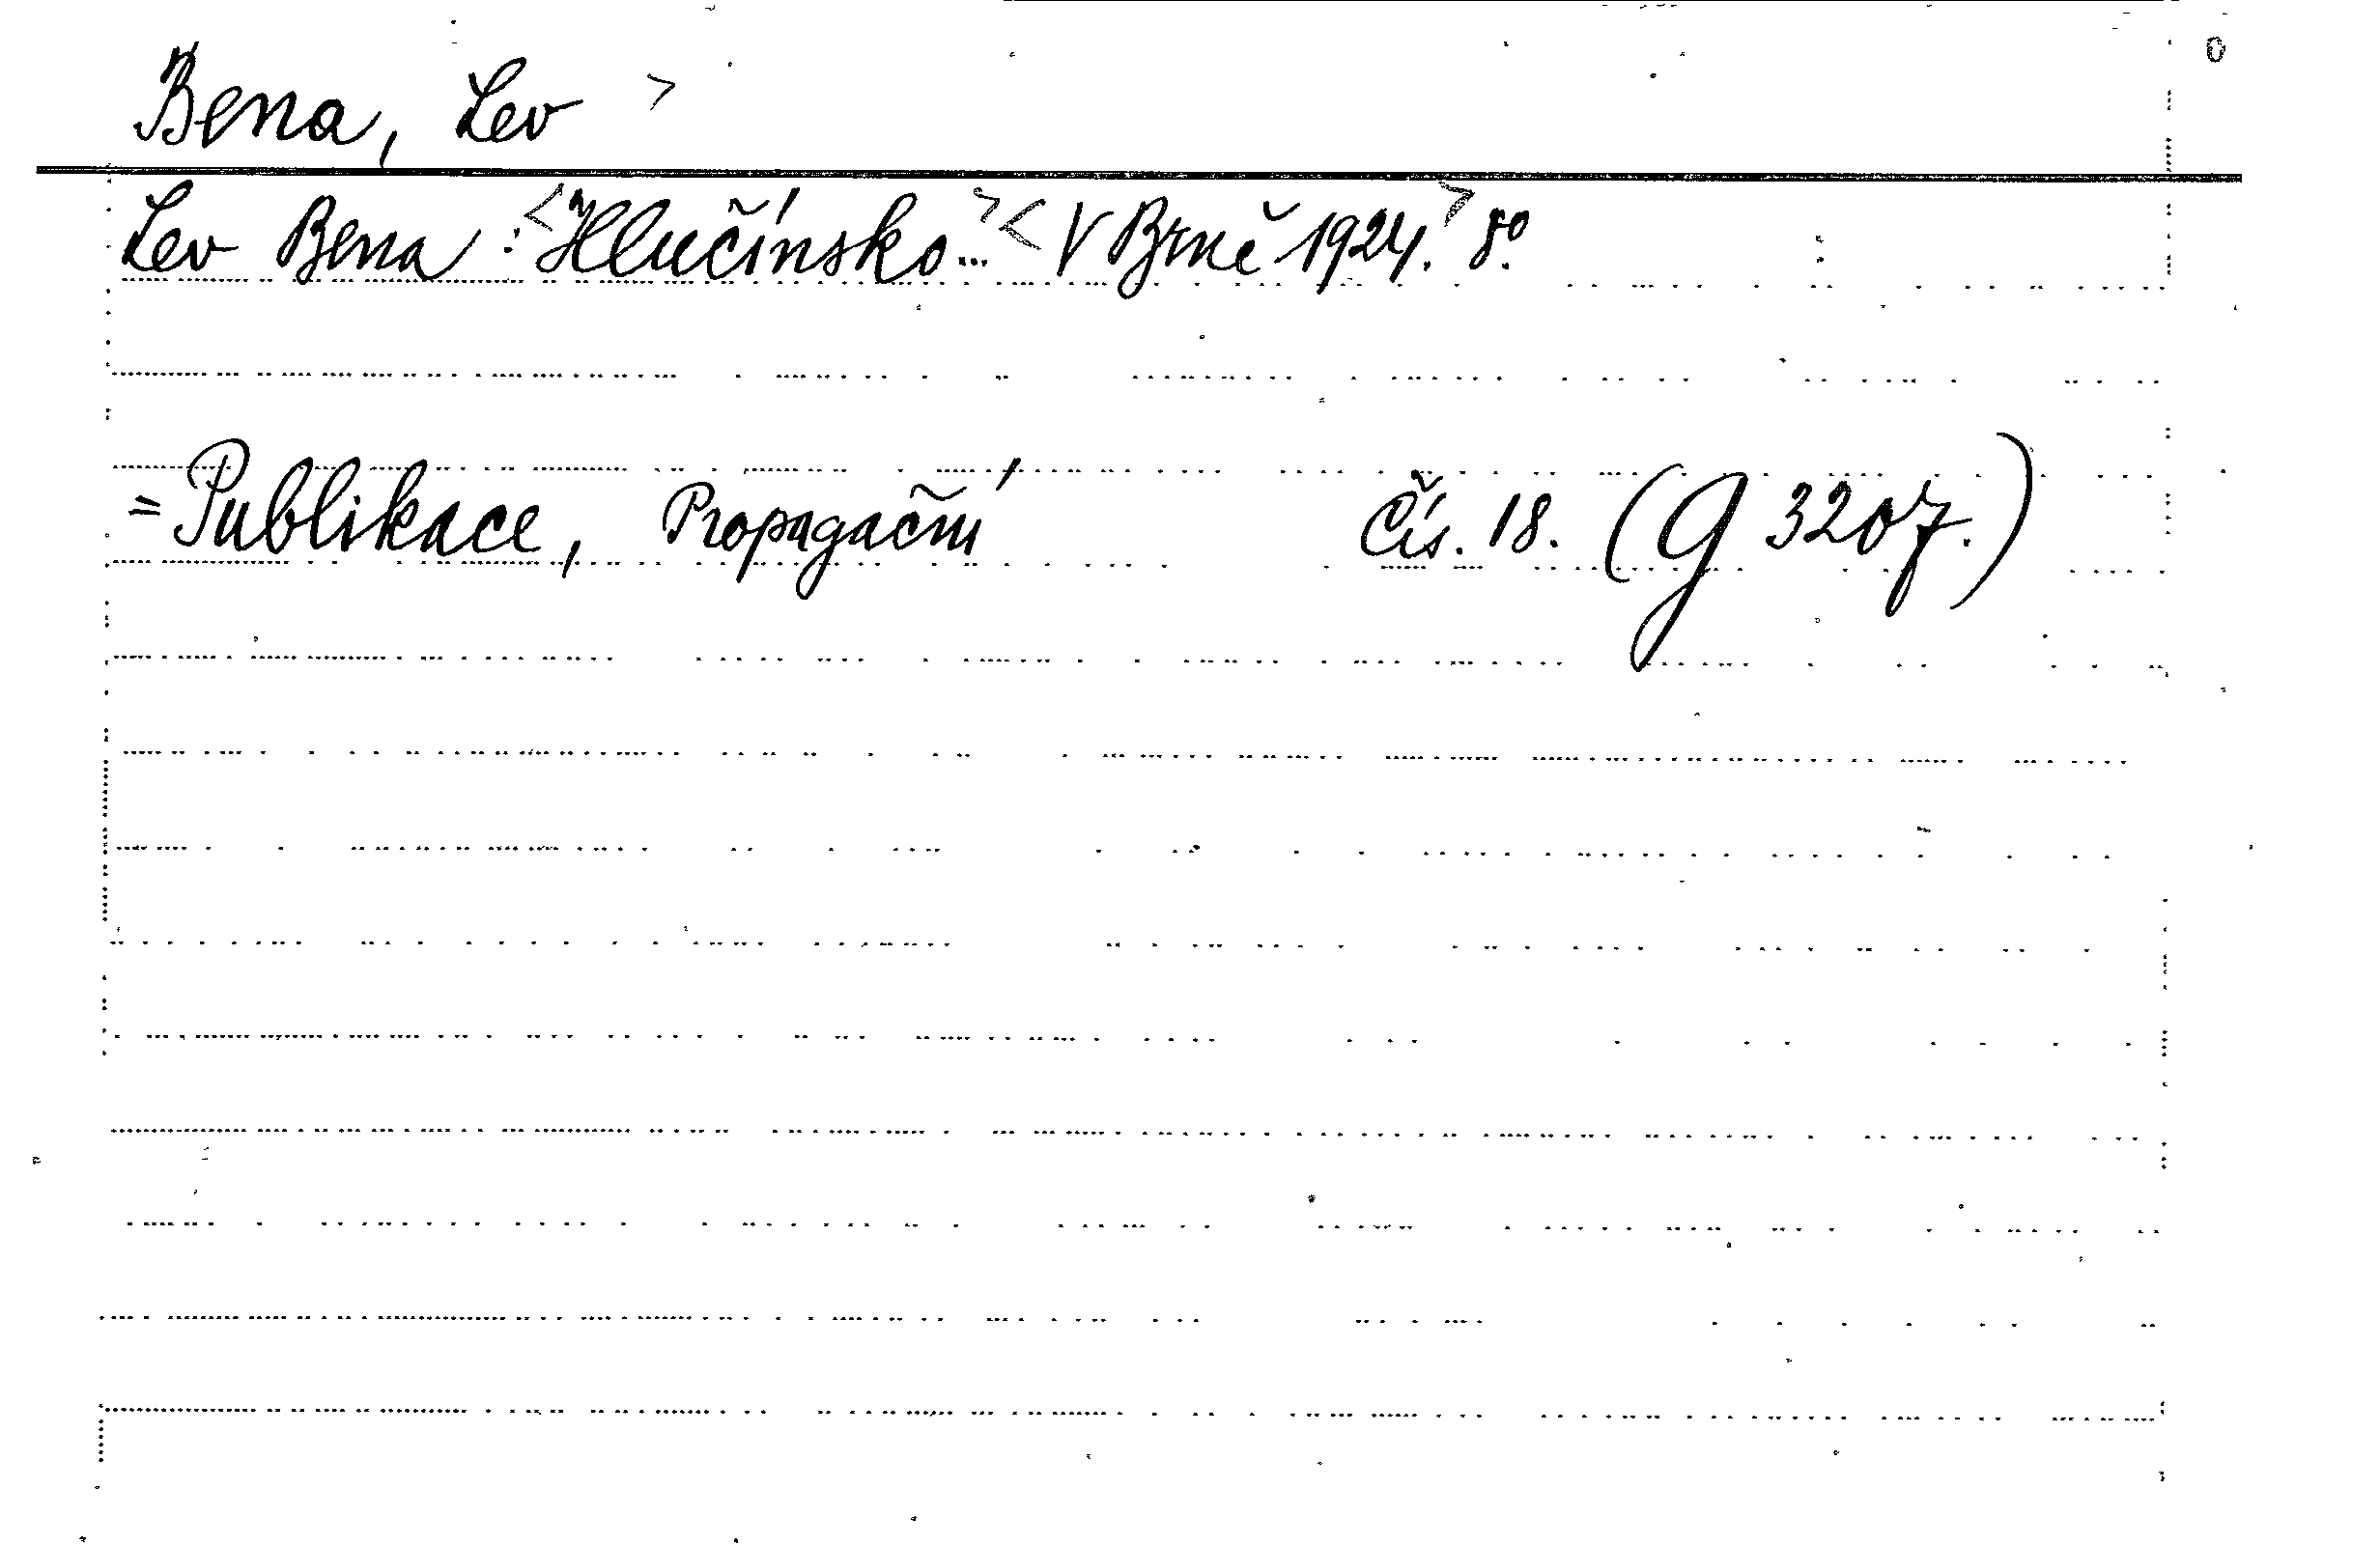 Bena, Lev >
Lev Bena : <Hlučínsko...> <V Brně 1924.> 8o.
= Publikace, Propagační čís. 18. (G 3207.)